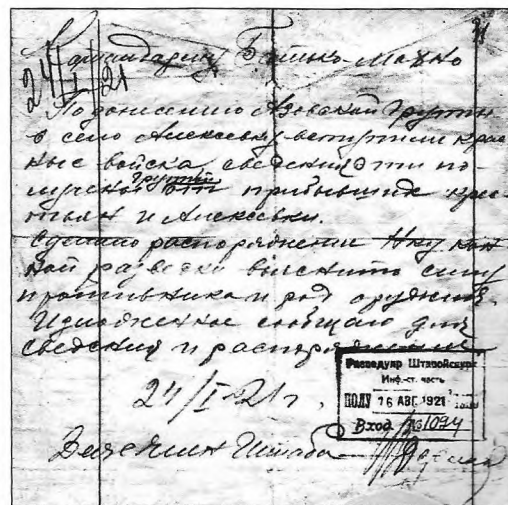 24/I 21
Командарму Батько-Махно
По донесению Азовской группы
в село Алексеевку вступили крас
ные войска сведения эти по-
группой
прибывших крес
тьян и Алексеевки.
Сделано распоряжение Нку кон
ной разведки выяснить силу
противника и род оружия.
Изложенное сообщаю для
сведения и распоряжения
Разведупр Штавойск
Инф.-ст. часть
ПОЛУ 16 АВГ 1921
Вход №1094
24/I-21 г.
Штаба